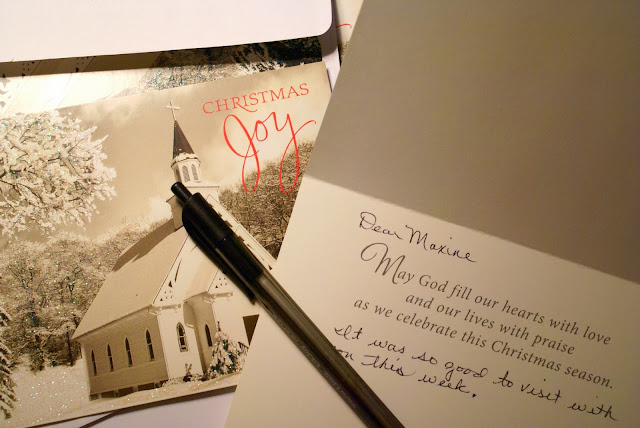 CHRISTMAS
Joy
Dear Maxine
May God fill our hearts with love
and our lives with praise
as we celebrate this Christmas season.
It was so good to visit with
you this week.